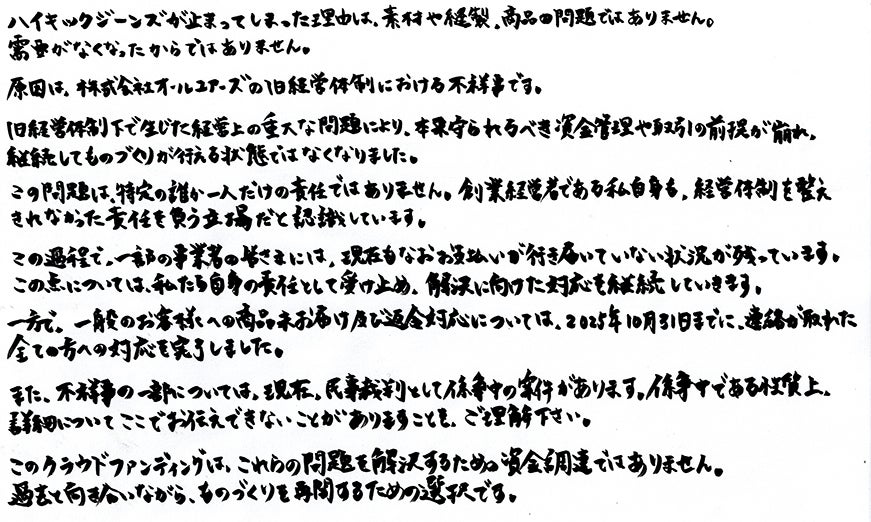 ハイキックジーンズが止まってしまった理由は、素材や縫製、商品の問題ではありません。
需要がなくなったからではありません。
原因は、株式会社オールユアーズの旧経営体制における不祥事です。
旧経営体制下で生じた経営上の重大な問題により、本来守られるべき資金管理や取引の前提が崩れ、
継続してものづくりが行える状態ではなくなりました。
この問題は、特定の誰か一人だけの責任ではありません。創業経営者である私自身も、経営体制を整え
きれなかった責任を負う立場だと認識しています。
この過程で、一部の事業者の皆さまには、現在もなおお支払いが行き届いていない状況が残っています。
この点については、私たち自身の責任として受け止め、解決に向けた対応を継続していきます。
一方で、一般のお客様への商品未お届け及び返金対応については、2025年10月31日までに、連絡が取れた
全ての方への対応を完了しました。
また、不祥事の一部については、現在、民事裁判として係争中の案件があります。係争中である性質上、
詳細についてここでお伝えできないことがありますことを、ご理解下さい。
このクラウドファンディングは、これらの問題を解決するための資金調達ではありません。
過去と向き合いながら、ものづくりを再開するための選択です。